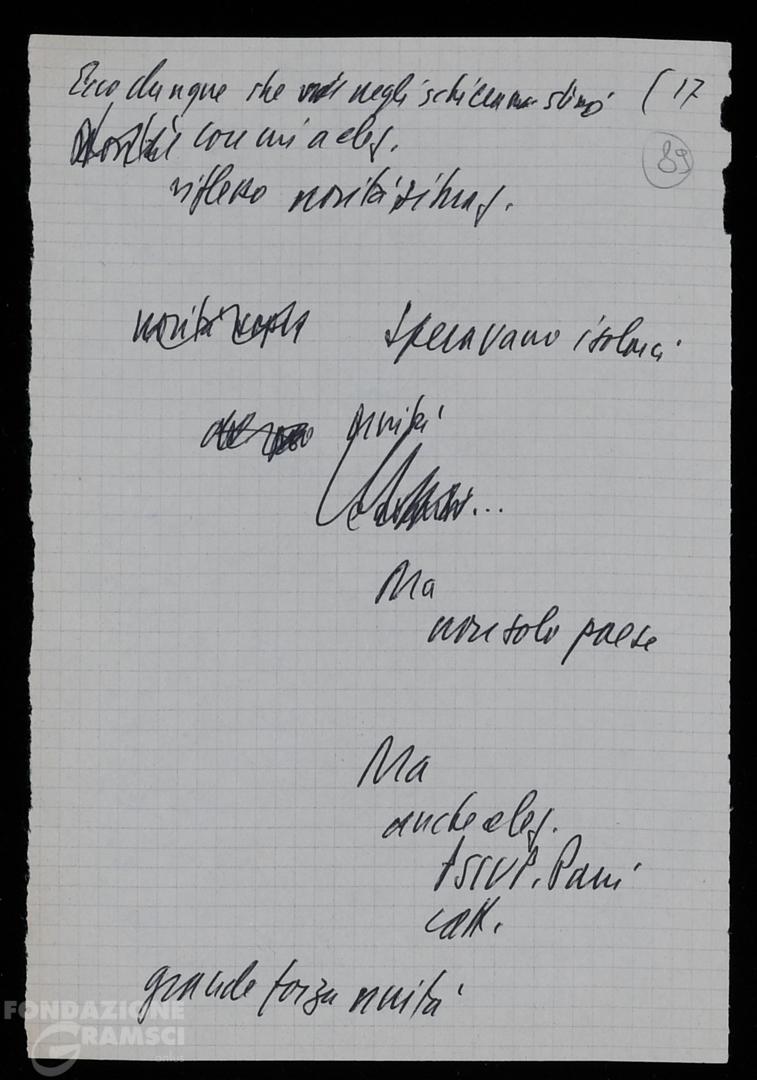 Ecco dunque che negli schieramenti (17
89
con cui a eleg.
riflesso novità
novità speravano isolarci
unità
...
Ma
non solo paese
Ma
anche eleg.
PSIUP. Parri
catt.
grande forza unità
FONDAZIONE
GRAMSCI
onlus